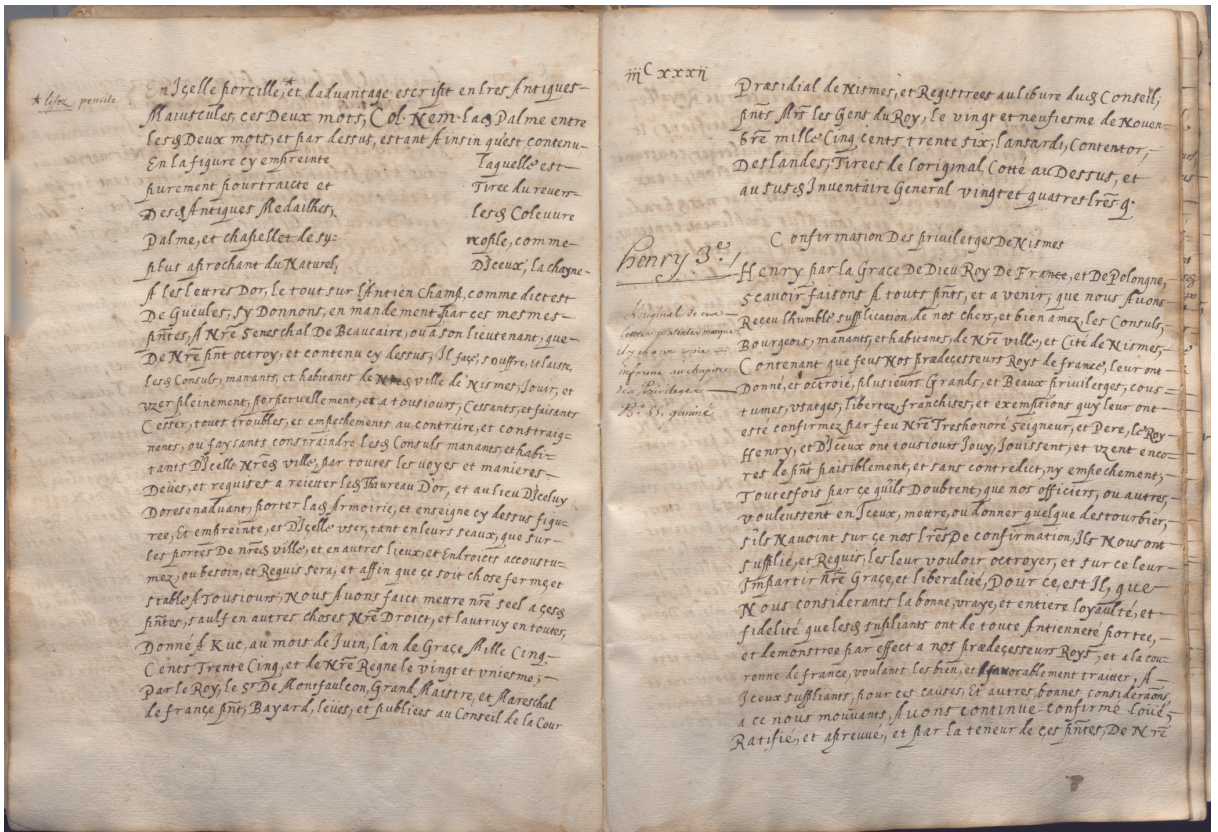 * lisez pencile
En Içelle porcille,* et dadvantage escripit en lres Antiques
Maiuscules, ces Deux mots, Col. Nem. lad Palme entre
lesd Deux mots, et par dessus, estant Ainsin qu'est contenu
En la figure cy empreinte laquelle est
purement pourtraicte et Tiree du revers
Desd Antiques Medailhes, lesd Coleuvre
Palme, et chapellet de sy: roпile, comme
pibus aprochant du Naturel, D'Iceux, la chayne
A les lettres Dor, le tout sur l'Antien Champ, comme dict est
De Gueules, sy Donnons, en mandement par ces mesmes
pñtes, A Nrẽ Seneschal de Beaucaire, ou a son lieutenant, que
De Nrẽ pñt octroy, et contenu cy dessus, Il façe, souffre, et laisse,
lesd Consuls, manants, et habitants de Nred ville de Nismes, Jouir, et
vzer pleinement, perpetuellement, et a tousiours, Cessants, et faisants
Cesser, touts troubles, et empechements au contraire, et constraig-
nants, ou faysants constraindre lesd Consuls manants, et habi-
tants D'Icelle Nred ville, par toutes les voyes et manieres
Deües, et requises a reietter led Thaureau D'or, et au lieu D'Iceluy
Doresenadvant, porter lad Armoirie, et enseigne cy dessus figu-
ree, Et empreinte, et D'Içelle vser, tant en leurs seaux, que sur
les portes De nred ville, et en autres lieux, et Endroicts accoustu-
mez, ou besoin, et Requis sera, et affin que çe soit chose ferme, et
stable A Tousiours, Nous Avons faict mettre nrẽ seel a çesd
pñtes, saulf en autres choses Nrẽ Droict, et lautruy en toutes,
Donné A Kuc, au mois de Juin, l'an de Graçe Mille Cinq
Cents Trente Cinq, et de Nrẽ Regne le vingt et vniesme;
Par le Roy, le Sr De Montfaulcon, Grand Maistre, et Mareschal
de françe pñt, Bayard, leües, et publiées au Conseil de la Cour
iiiC xxxii
Præsidial de Nismes, et Registrees au libure dud Conseil,
pñts Mrs les Gens du Roy, le vingt et neufiesme de Noven-
brẽ mille Cinq Cents trente six, lansardi, Contentor,
Deslandes, Tirees de l'original, Cotte au Dessus, et
au susd Inventaire General vingt et quatres lrẽs q.
Confirmation Des priviletges De Nismes
henry 3.e/
Henry par la Grace De Dieu Roy De France, et De Pologne,
Sçavoir faisons A touts pñts, et a venir, que nous Avons
Receu l'humble supplication, de nos chers, et bien amez, les Consuls,
Bourgeois, manants, et habitants, de Nrẽ ville, et Cité de Nismes,
Contenant que feus Nos prædeçesseurs Roys de france, leur ont
Donné, et octroié, plusieurs Grands, et Beaux priviletges, cous-
tumes, vsatges, libertez, franchises, et exemptions quy leur ont
esté confirmez par feu Nrẽ Treshonoré Seigneur, et Pere, le Roy
Henry, et D'Iceux ont tousiours Jouy, Jouissent, et vzent enco-
res de pñt paisiblement, et sans contredict, ny empechement,
Toutesfois par ce qu'ils Doubtent, que nos officiers, ou autres,
vouleussent en Iceux, mettre, ou donner quelque destourbier,
s'ils N'avoint sur çe nos lrẽs De confirmation, Ils Nous ont
supplié, et Requis, les leur vouloir octroyer, et sur ce leur
Impartir nrẽ Graçe, et liberalité, Pour ce, est Il, que
Nous considerants la bonne, vraye, et entiere loyaulté, et
fidelité que lesd supliants ont de toute Antienneté portee,
et demonstree par effect a nos prædeçesseurs Roys, et a la cou-
ronne de france, voulants les bien, et favorablement traitter, A
Iceux suppliants, pour ces causes, Et autres, bonnes, consideraõns,
a ce nous mouvants, Avons continué confirmé loüé,
Ratifié, et apreuvé, et par la teneur de çes pñtes, De Nrẽ
l'original de ces
lettres patentes manque
il y en a une copie
imprimé au chapitre
des Privileges